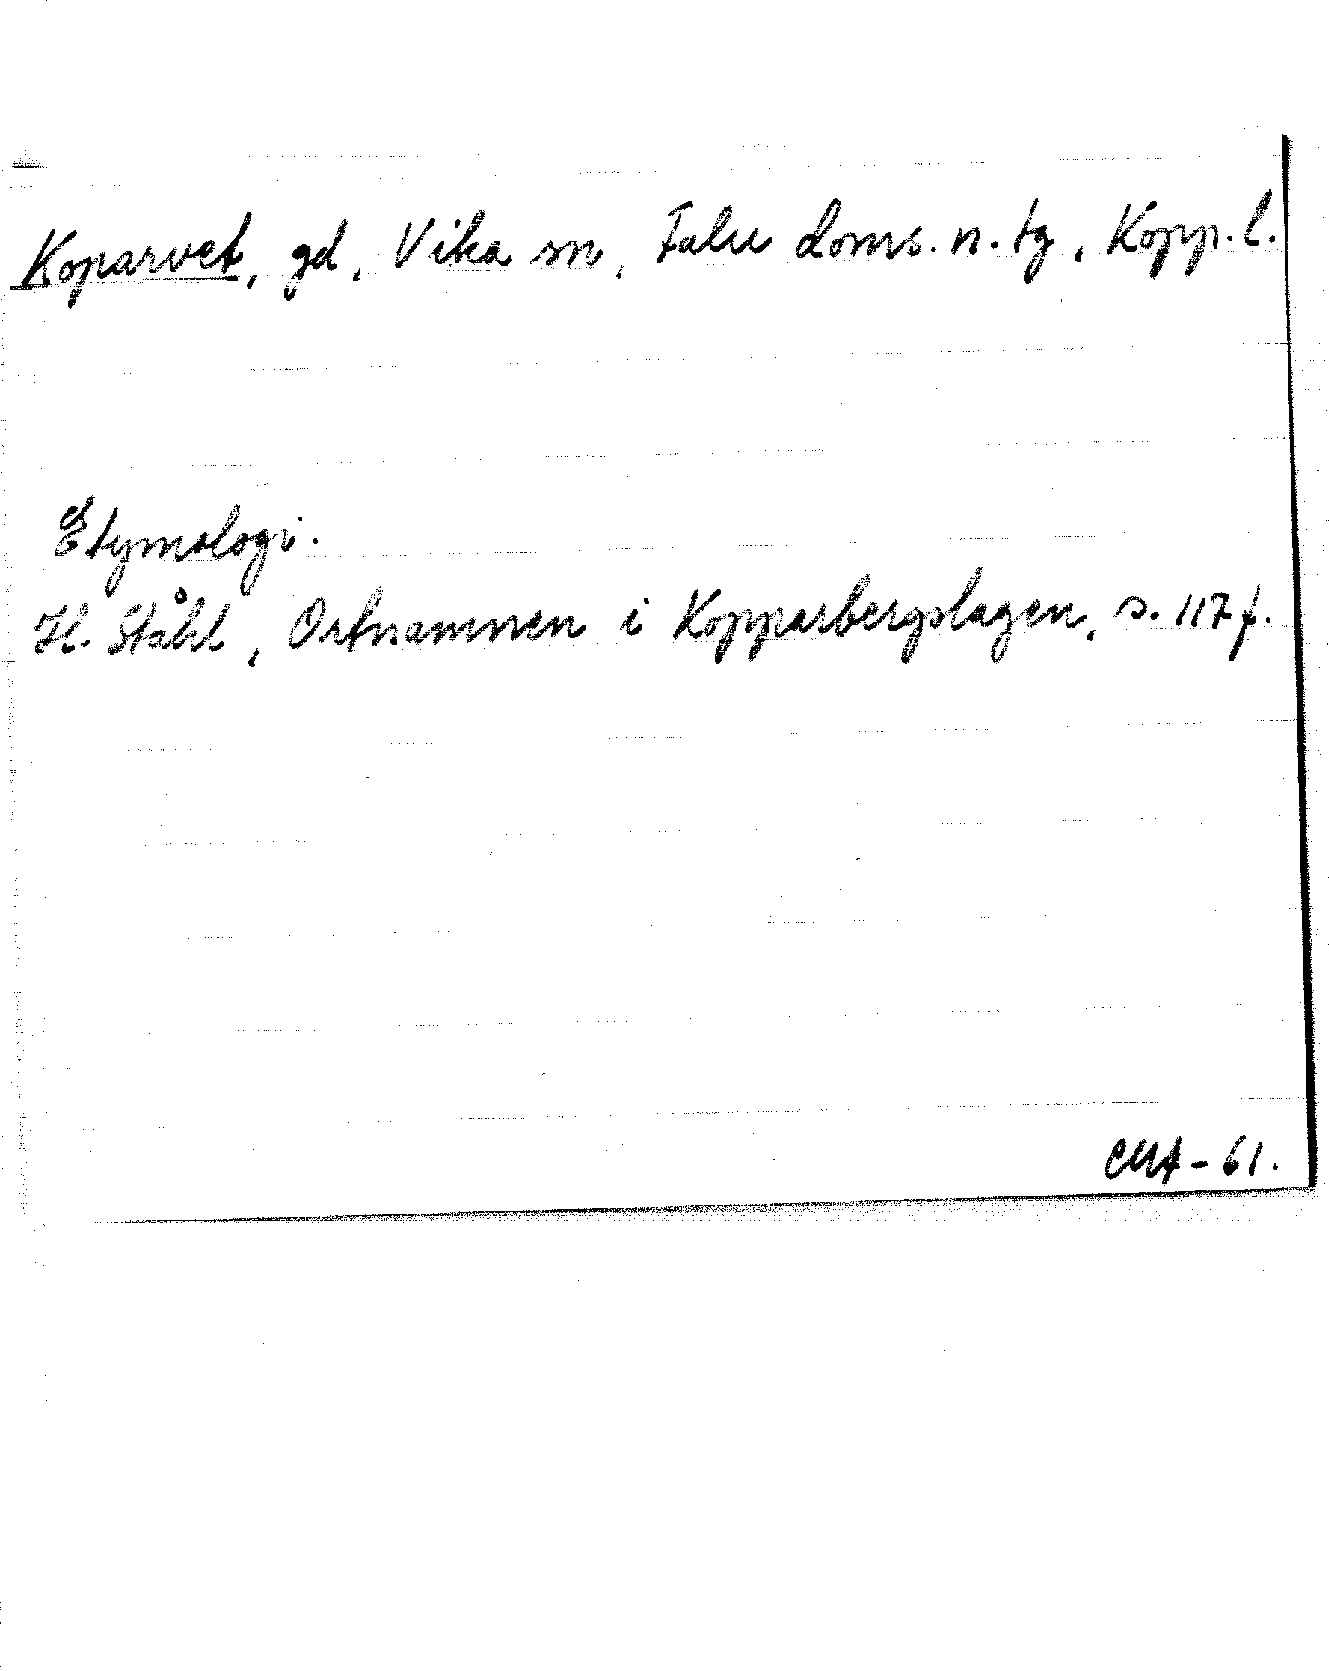 Koparvet, gd, Vika sn, Falu doms. n. tg, Kopp. l.
Etymologi.
H. Ståhl, Ortnamnen i Kopparbergslagen, s. 117 f.
- 61.